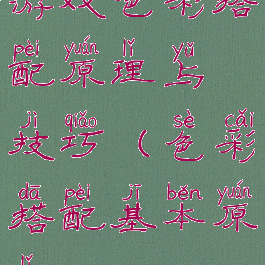 游戏色彩搭
pèi yuán lǐ yǔ
配原理与
jì qiǎo sè cǎi
技巧（色彩
dā pèi jī běn yuán
搭配基本原
lǐ